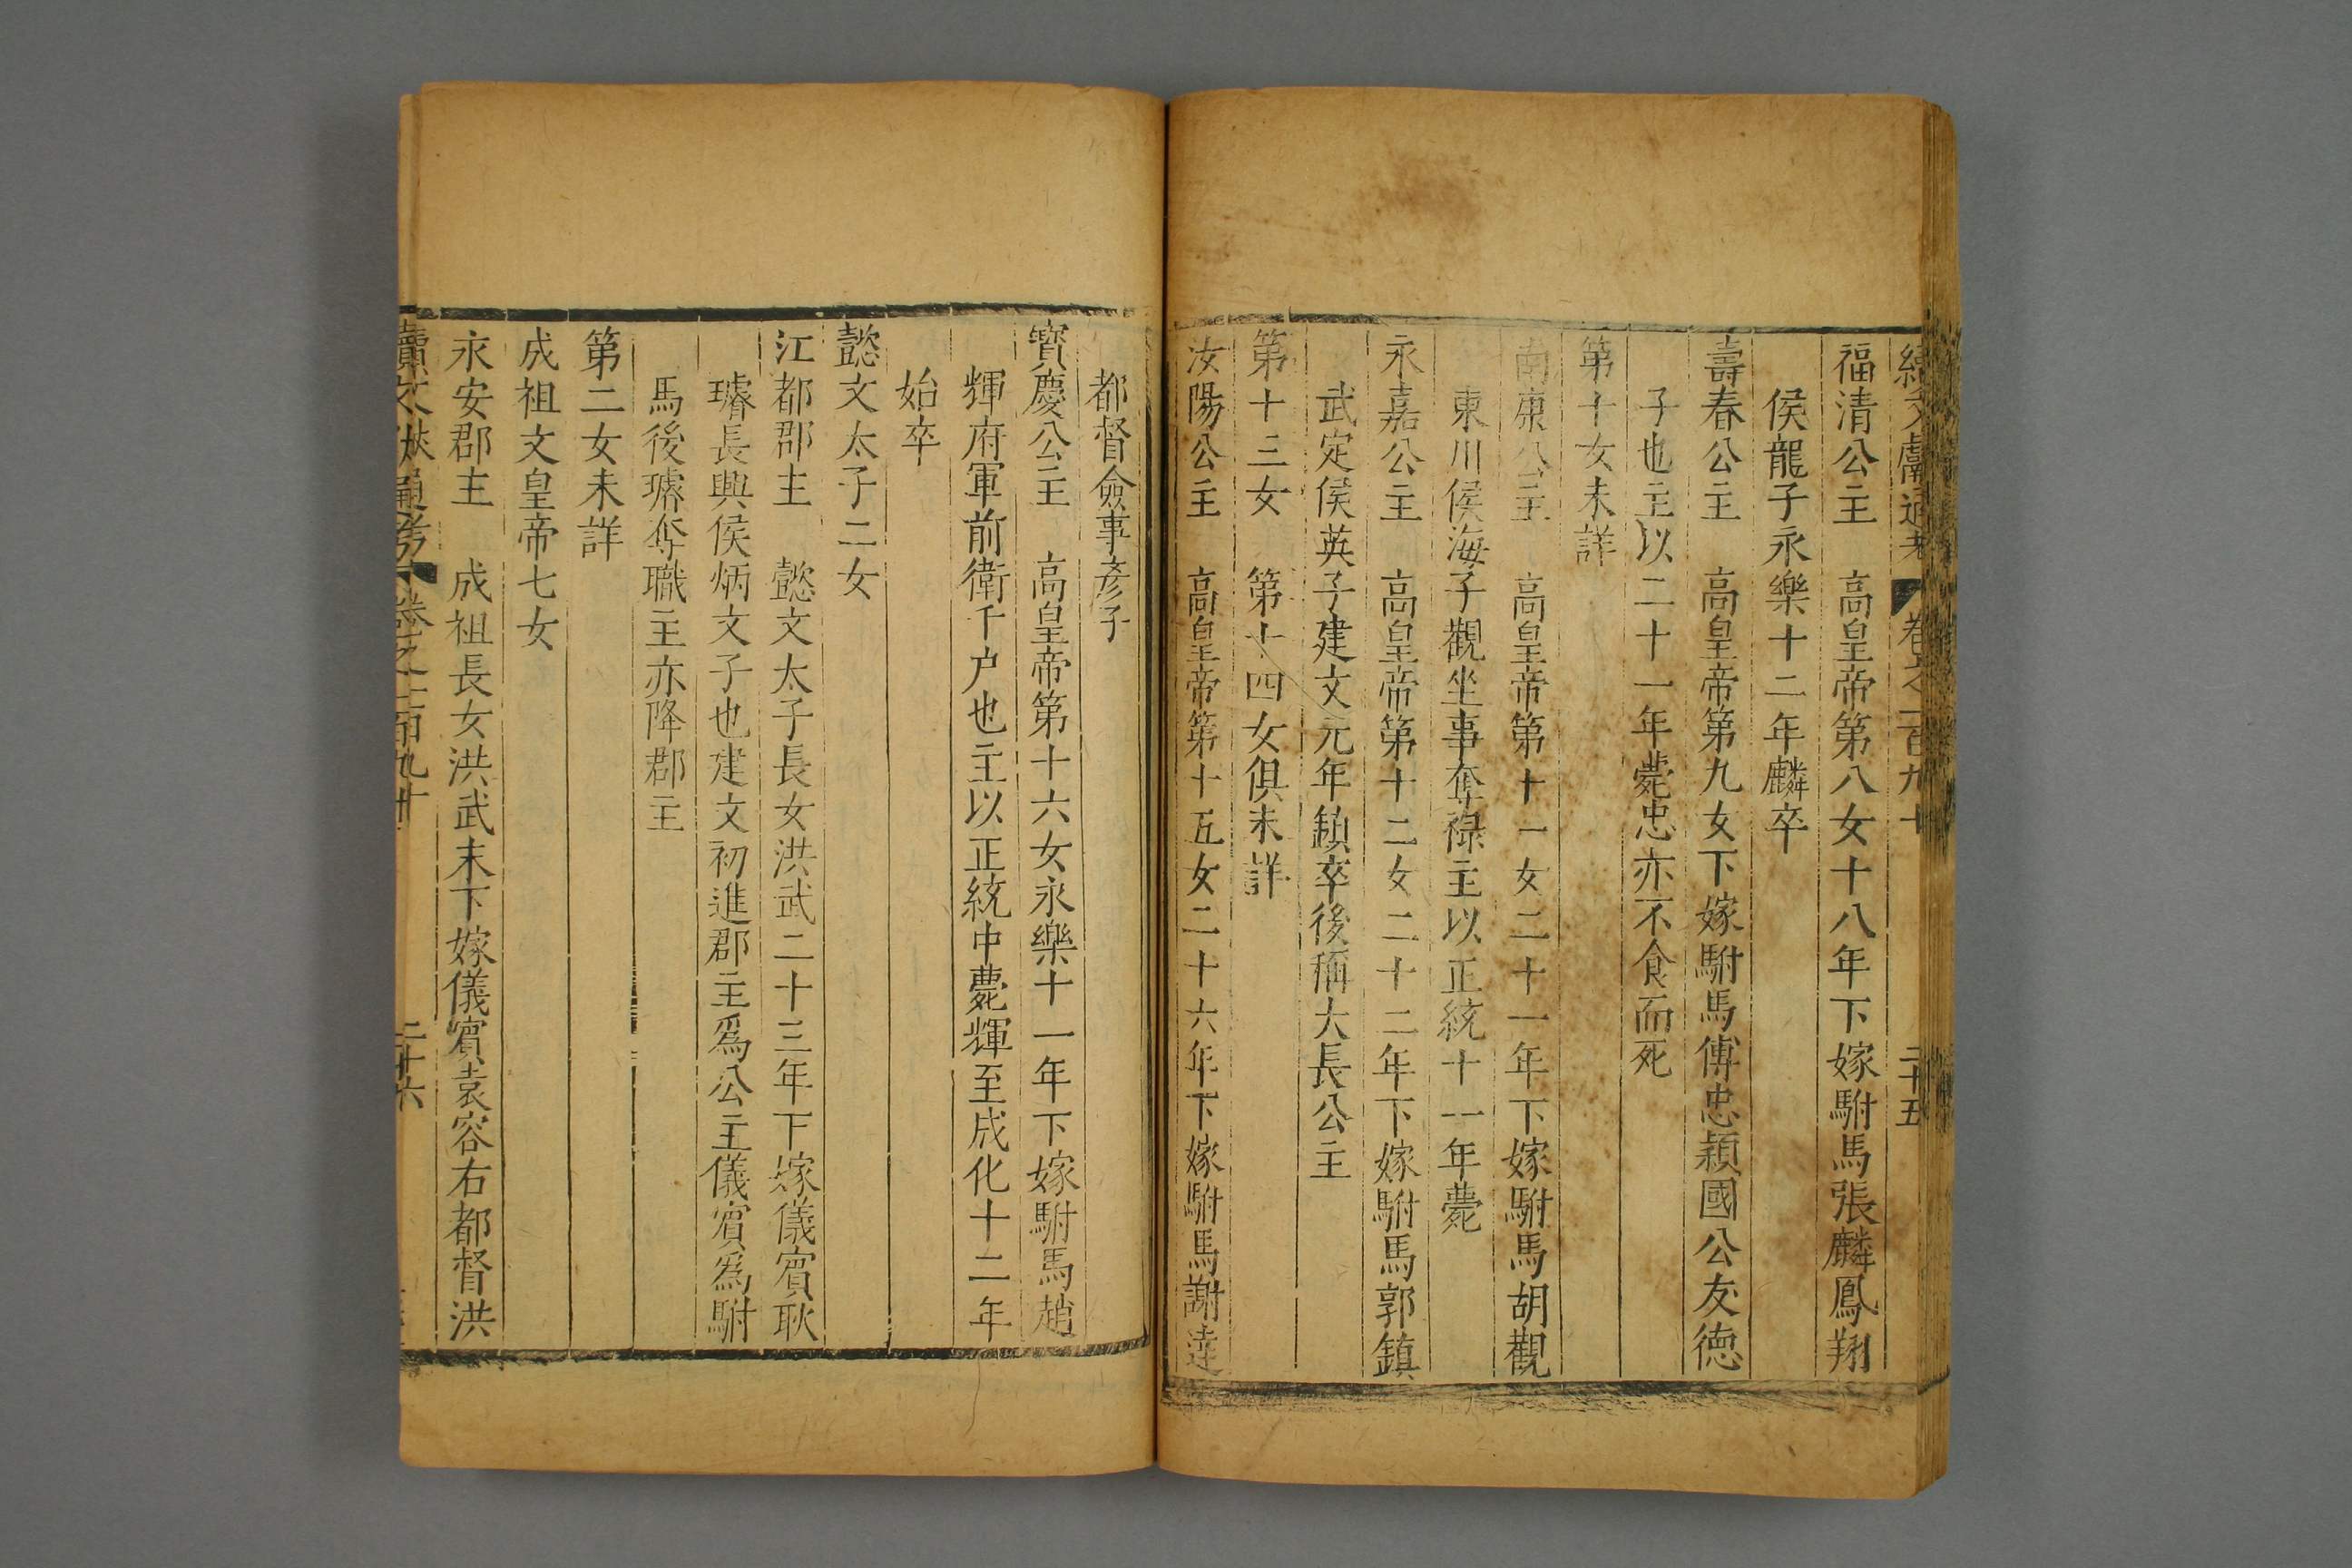 續文獻通考 卷之一百九十 二十五
福清公主 高皇帝第八女十八年下嫁駙馬張麟鳳翔
侯龍子永樂十二年麟卒
壽春公主 高皇帝第九女下嫁駙馬傅忠潁國公友德
子也主以二十一年薨忠亦不食而死
第十女未詳
南康公主 高皇帝第十一女二十一年下嫁駙馬胡觀
東川侯海子觀坐事奪祿主以正統十一年薨
永嘉公主 高皇帝第十二女二十二年下嫁駙馬郭鎮
武定侯英子建文元年鎮卒後稱大長公主
第十三女 第十四女俱未詳
汝陽公主 高皇帝第十五女二十六年下嫁駙馬謝達
都督僉事彥子
寶慶公主 高皇帝第十六女永樂十一年下嫁駙馬趙
輝府軍前衛千户也主以正統中薨輝至成化十二年
始卒
懿文太子二女
江都郡主 懿文太子長女洪武二十三年下嫁儀賓耿
璿長興侯炳文子也建文初進郡主爲公主儀賓爲駙
馬後璿奪職主亦降郡主
第二女未詳
成祖文皇帝七女
永安郡主 成祖長女洪武末下嫁儀賓袁容右都督洪
續文獻通考 卷之一百九十 二十六